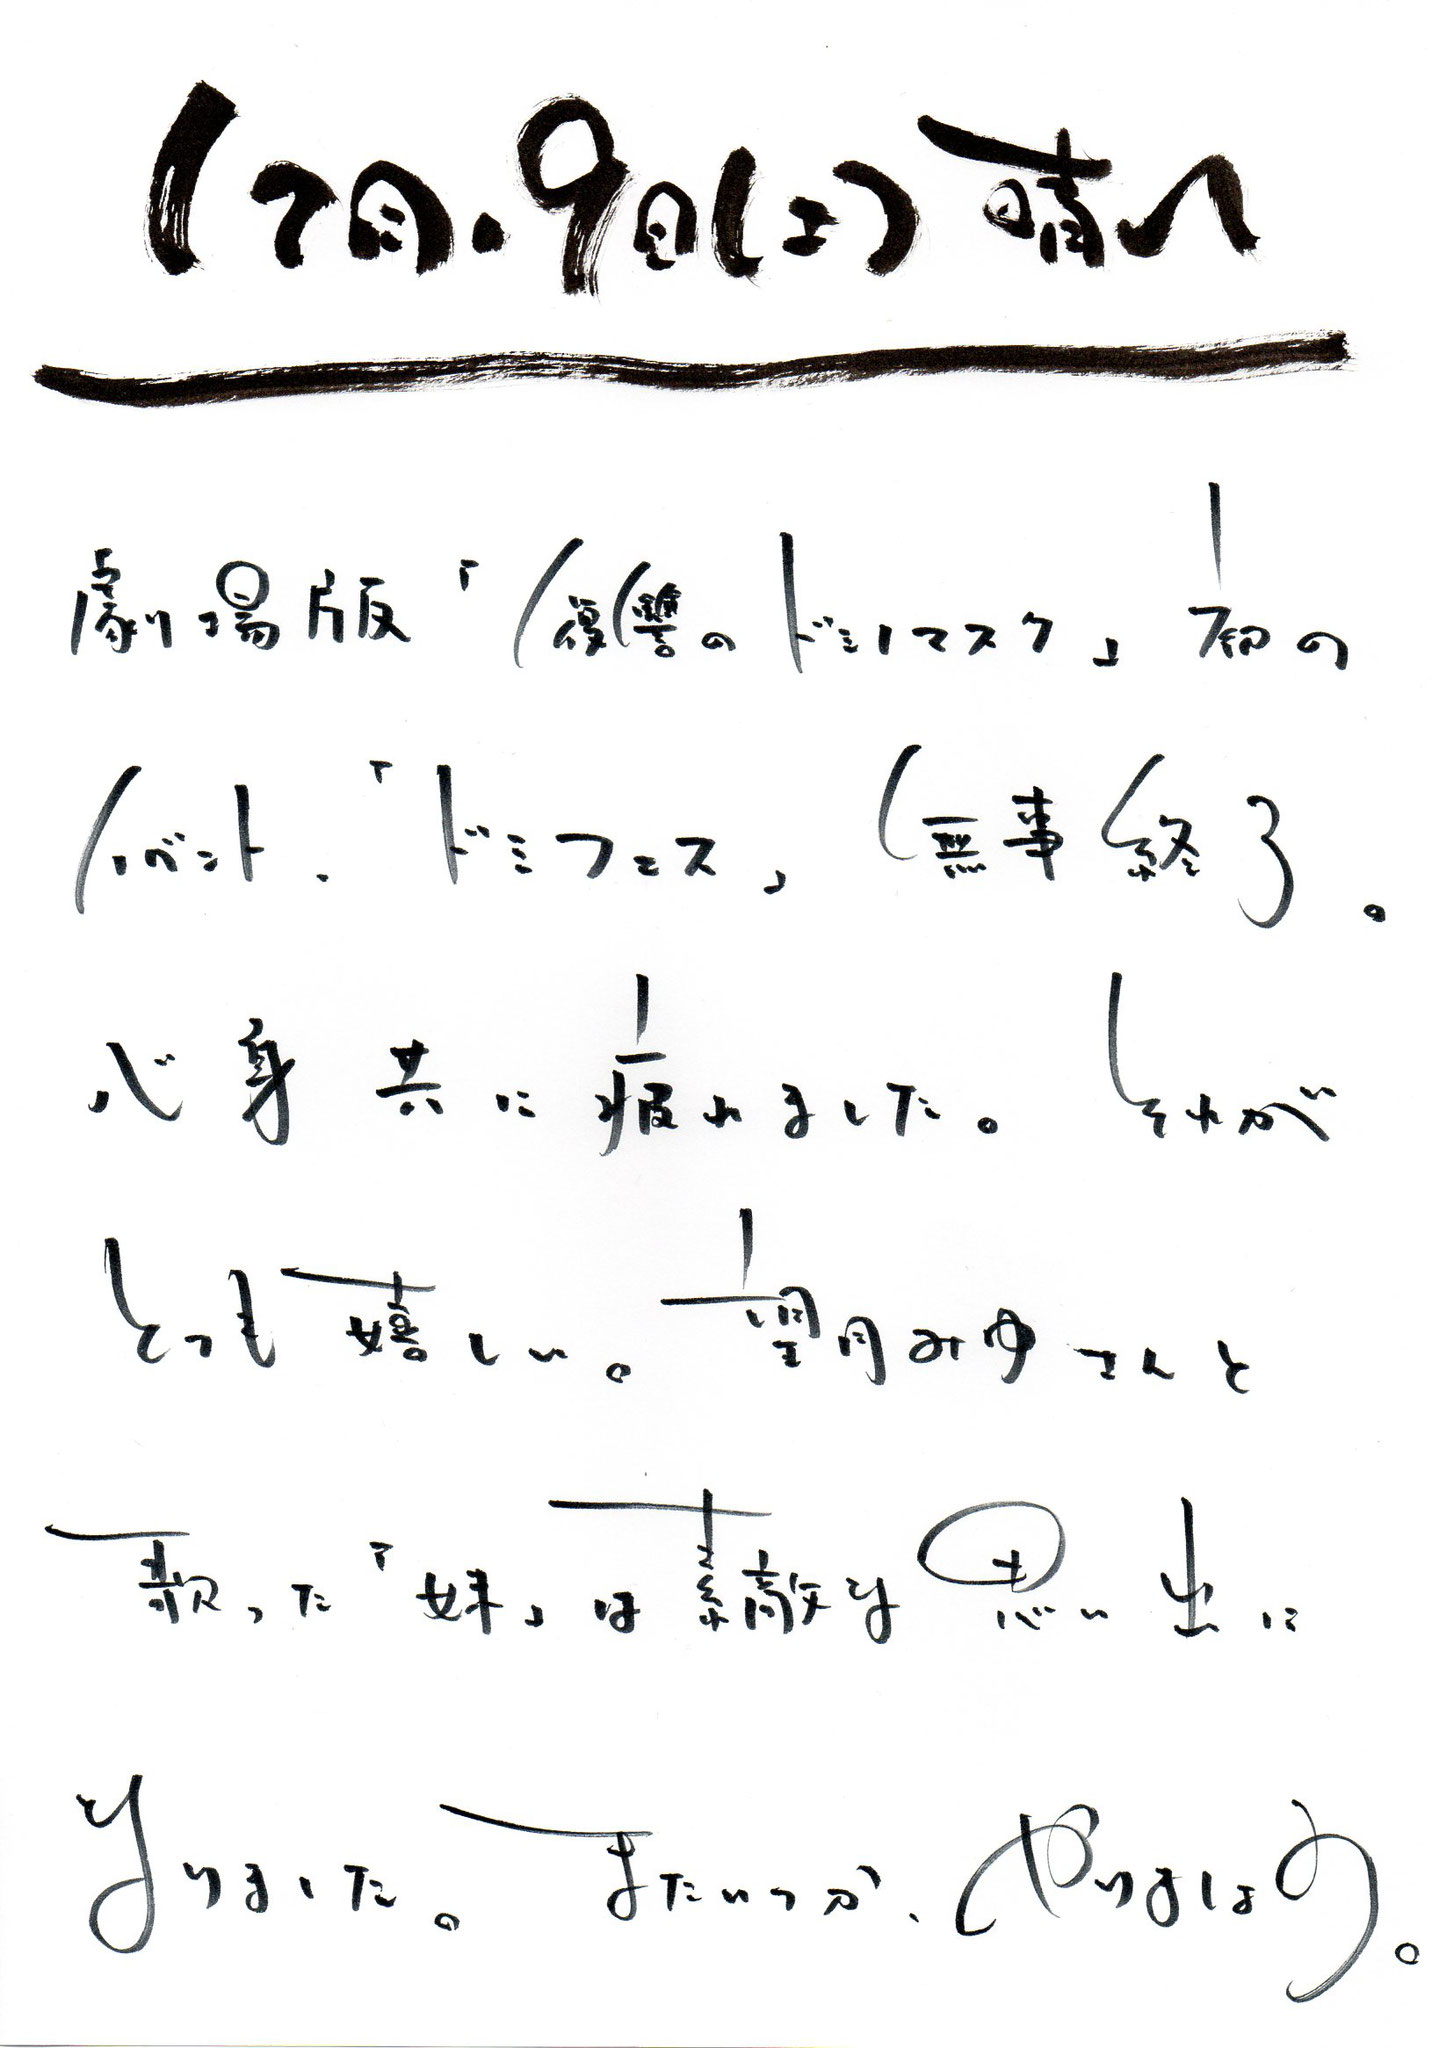 12月.9日(土)晴れ
劇場版「復讐のドミノマスク」初の
イベント.「ドミフェス」無事終了。
心身共に疲れました。それが
とっても嬉しい。望月みゆさんと
歌った「妹」は素敵な思い出に
なりました。またいつか、やりましょう。